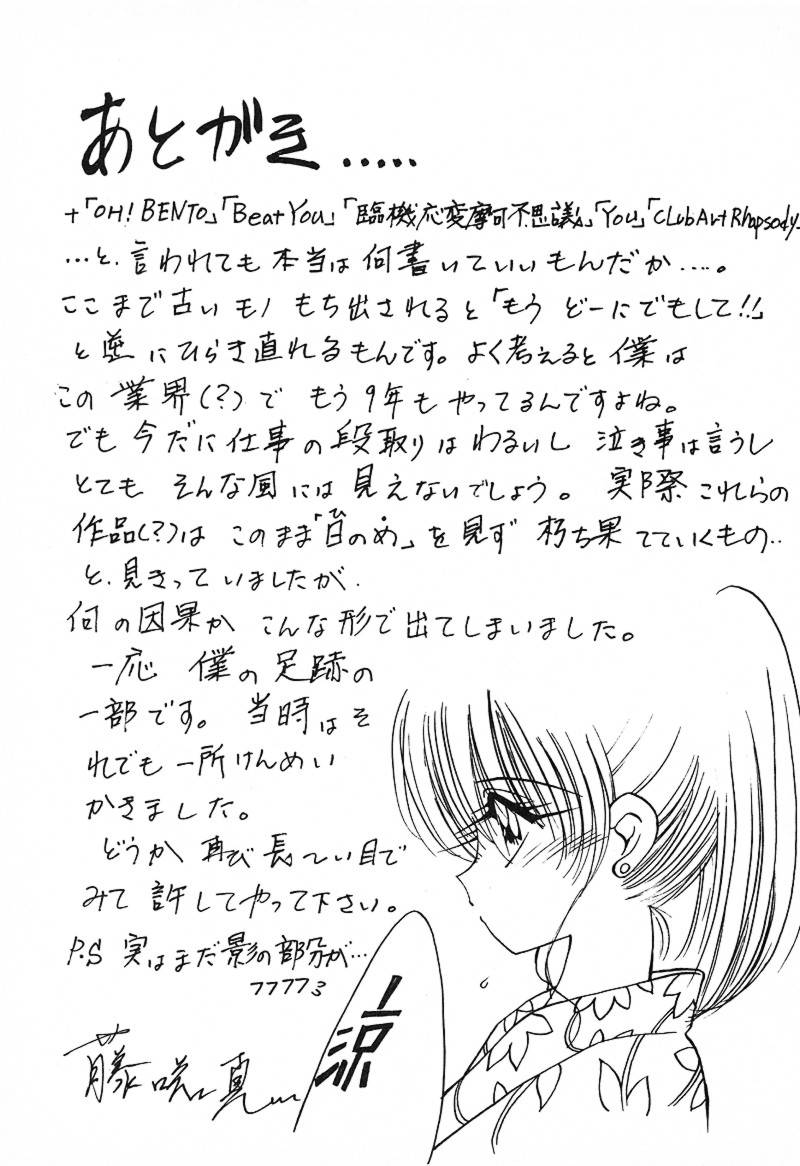 あとがき.....
+「OH! BENTO」「Beat You」「臨機応変摩可不思議」「You」「Club Art Rhapsody」
…と、言われても本当は何書いていいもんだか…。
ここまで古いモノ もち出されると「もう どーにでもして!!」
と逆にひらき直れるもんです。よく考えると僕は
この 業界(?)で もう9年もやってるんですよね。
でも今だに仕事の段取りはわるいし 泣き事は言うし
とても そんな風には見えないでしょう。 実際これらの
作品(?)は このまま「日のめ」を見ず 朽ち果てていくもの‥
ひ
と、見きっていましたが、
何の因果か こんな形で出てしまいました。
一応 僕の足跡の
一部です。 当時はそ
れでも一所けんめい
かきました。
どうか 再び長〜い目で
みて 許してやって下さい。
P.S 実はまだ影の部分が…
フフフフ
藤咲真
涼